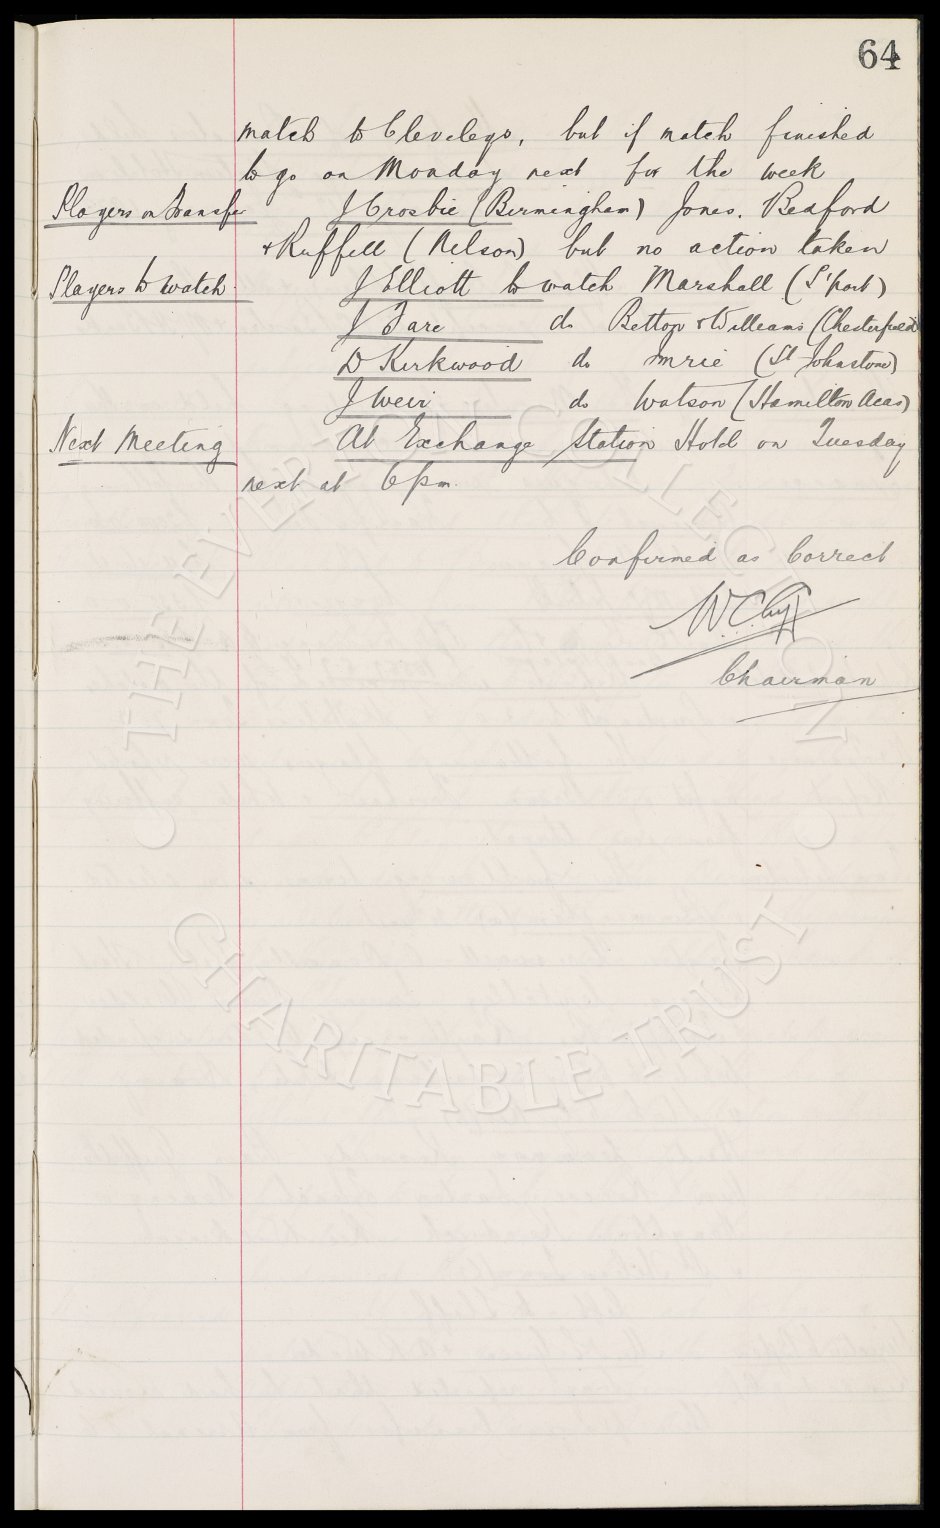 64
match to Cleveleys, but if match finished
to go on Monday next for the week
Players on Transfer J Crosbie (Birmingham) Jones. Bedford
& Ruffell (Nelson) but no action taken
Players to watch. J Elliott to watch Marshall (S'port)
J Fare do Bettop & Williams (Chesterfield)
D Kirkwood do Imrie (St Johnstone)
J Weir do Watson (Hamilton Acas)
Next Meeting At Exchange Station Hotel on Tuesday
next at 6 pm.
Confirmed as Correct
W.C. Cuff
Chairman
THE EVERTON COLLECTION
CHARITABLE TRUST